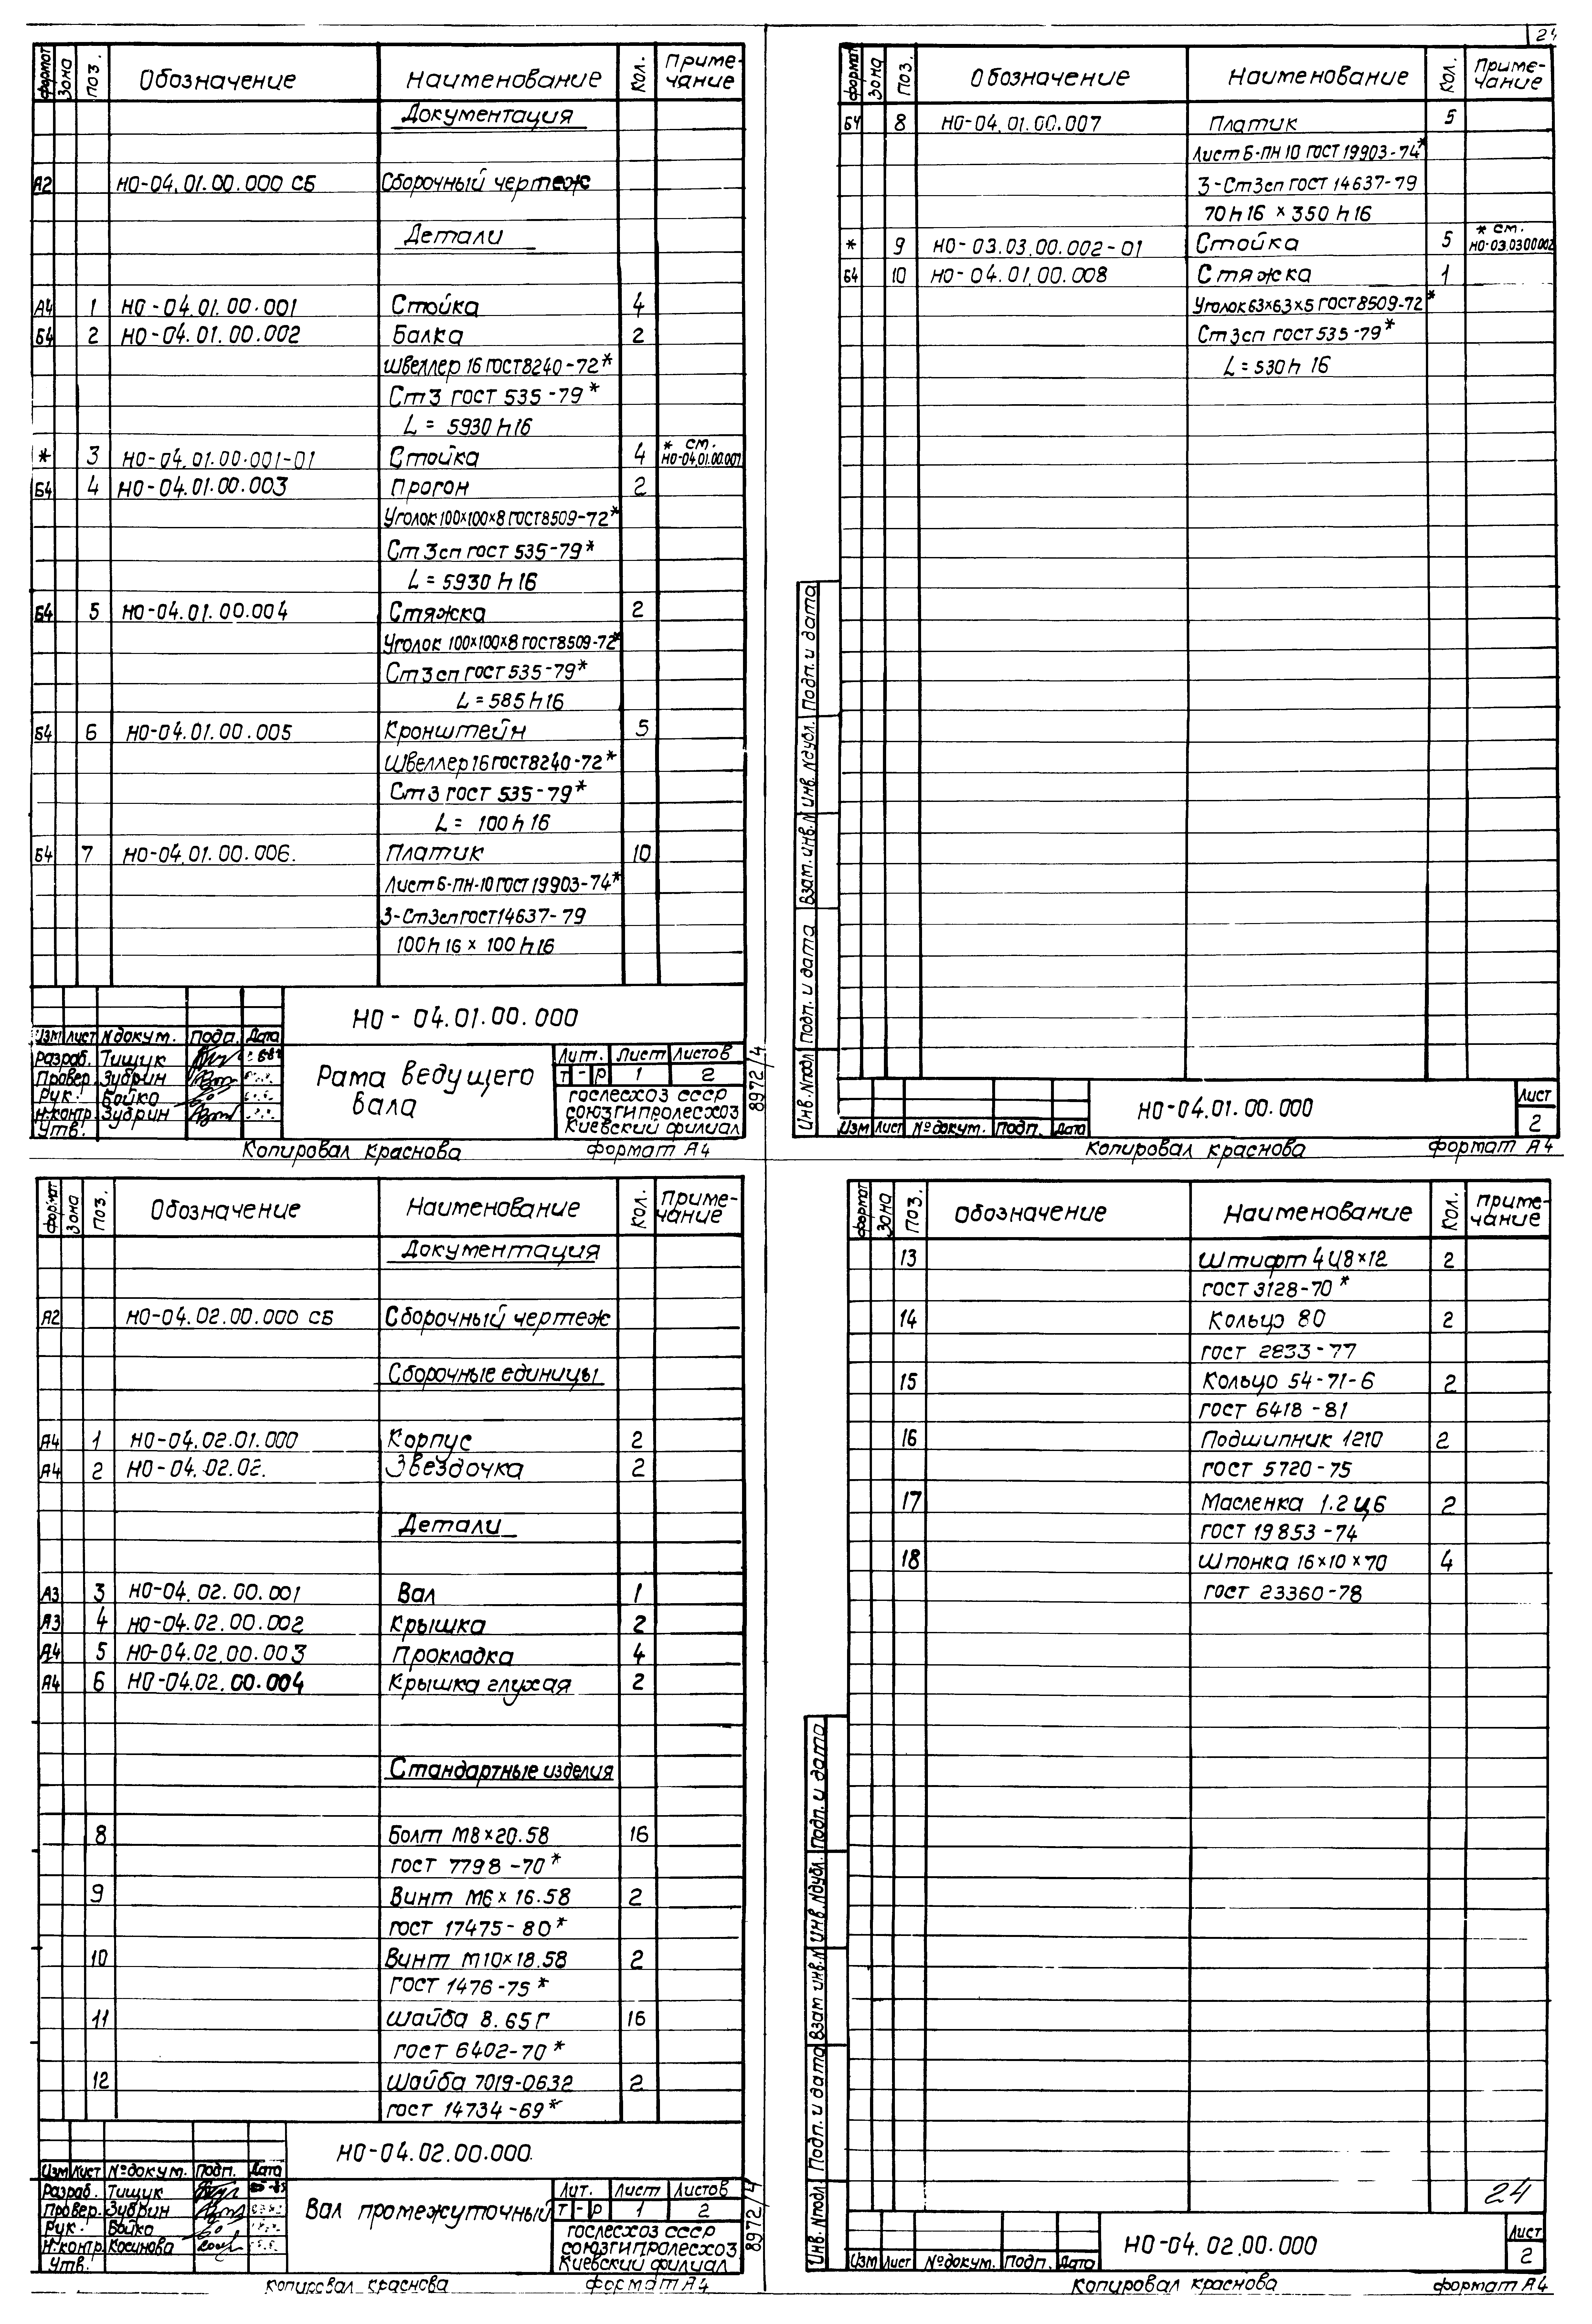 24
формат Зона поз. Обозначение Наименование Кол. Примечание
Документация
А2 НО-04.01.00.000 СБ Сборочный чертеж
Детали
А4 1 НО-04.01.00.001 Стойка 4
Б4 2 НО-04.01.00.002 Балка 2
Швеллер 16 ГОСТ 8240-72*
Ст3 ГОСТ 535-79*
L = 5930 h16
* 3 НО-04.01.00.001-01 Стойка 4 * см. НО-04.01.00.001
Б4 4 НО-04.01.00.003 Прогон 2
Уголок 100×100×8 ГОСТ 8509-72*
Ст3сп ГОСТ 535-79*
L = 5930 h16
Б4 5 НО-04.01.00.004 Стяжка 2
Уголок 100×100×8 ГОСТ 8509-72*
Ст3сп ГОСТ 535-79*
L = 585 h16
Б4 6 НО-04.01.00.005 Кронштейн 5
Швеллер 16 ГОСТ 8240-72*
Ст3 ГОСТ 535-79*
L = 100 h16
Б4 7 НО-04.01.00.006. Платик 10
Лист Б-ПН-10 ГОСТ 19903-74*
3-Ст3сп ГОСТ 14637-79
100 h16 × 100 h16
НО-04.01.00.000
Изм Лист N докум. Подп. Дата
Разраб. Тищук
Провер. Зубрин
Рук. Бойко
Н.контр. Зубрин
Утв.
Рама ведущего
вала
Лит. Лист Листов
т - р 1 2
Гослесхоз СССР
Союзгипролесхоз
Киевский филиал
8972/4
Копировал Краснова формат А4
формат Зона Поз. Обозначение Наименование Кол. Примечание
Б4 8 НО-04.01.00.007 Платик 5
Лист Б-ПН 10 ГОСТ 19903-74*
3-Ст3сп ГОСТ 14637-79
70 h16 × 350 h16
* 9 НО-03.03.00.002-01 Стойка 5 * см. НО-03.03.00.002
Б4 10 НО-04.01.00.008 Стяжка 1
Уголок 63×63×5 ГОСТ 8509-72*
Ст3сп ГОСТ 535-79*
L = 530 h16
Инв. N подл Подп. и дата Взам. инв. N Инв. N дубл. Подп. и дата
Изм Лист № докум. Подп. Дата
НО-04.01.00.000
Лист
2
Копировал Краснова формат А4
формат Зона поз. Обозначение Наименование Кол. Примечание
Документация
А2 НО-04.02.00.000 СБ Сборочный чертеж
Сборочные единицы
А4 1 НО-04.02.01.000 Корпус 2
А4 2 НО-04.02.02. Звездочка 2
Детали
А3 3 НО-04.02.00.001 Вал 1
А3 4 НО-04.02.00.002 Крышка 2
А4 5 НО-04.02.00.003 Прокладка 4
А4 6 НО-04.02.00.004 Крышка глухая 2
Стандартные изделия
8 Болт М8×20.58 16
ГОСТ 7798-70*
9 Винт М6×16.58 2
ГОСТ 17475-80*
10 Винт М10×18.58 2
ГОСТ 1476-75*
11 Шайба 8.65Г 16
ГОСТ 6402-70*
12 Шайба 7019-0632 2
ГОСТ 14734-69*
НО-04.02.00.000.
Изм Лист № докум. Подп. Дата
Разраб. Тищук
Провер. Зубрин
Рук. Бойко
Н.контр. Косинова
Утв.
Вал промежуточный
Лит. Лист Листов
т - р 1 2
Гослесхоз СССР
Союзгипролесхоз
Киевский филиал
8972/4
Копировал Краснова формат А4
формат Зона Поз. Обозначение Наименование Кол. Примечание
13 Штифт 4Ц8×12 2
ГОСТ 3128-70*
14 Кольцо 80 2
ГОСТ 2833-77
15 Кольцо 54-71-6 2
ГОСТ 6418-81
16 Подшипник 1210 2
ГОСТ 5720-75
17 Масленка 1.2Ц6 2
ГОСТ 19853-74
18 Шпонка 16×10×70 4
ГОСТ 23360-78
Инв. N подл. Подп. и дата Взам инв. N Инв. N дубл. Подп. и дата
24
Изм Лист № докум. Подп. Дата
НО-04.02.00.000
Лист
2
Копировал Краснова формат А4